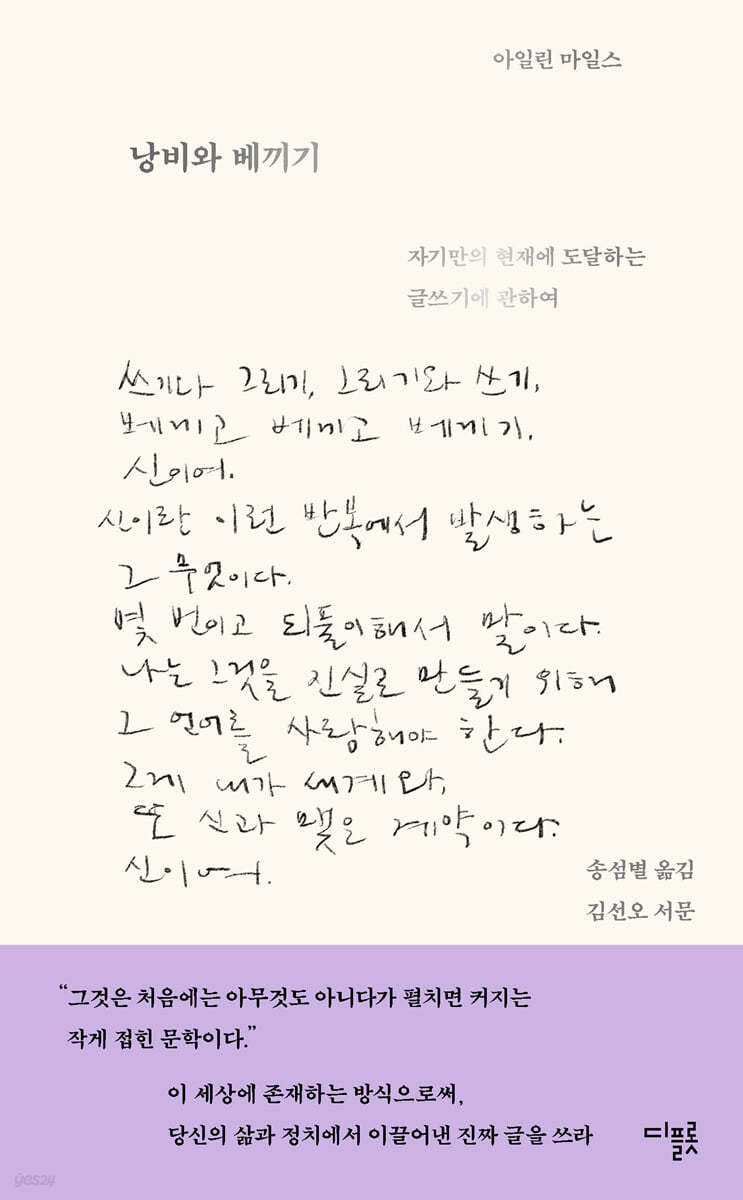 아일린 마일스
낭비와 베끼기
자기만의 현재에 도달하는
글쓰기에 관하여
쓰기다 그리기, 그리기와 쓰기,
베끼고 베끼고 베끼기.
신이여.
신이란 이런 반복에서 발생하는
그 무엇이다.
몇 번이고 되풀이해서 말이다.
나는 그것을 진실로 만들기 위해
그 언어를 사랑해야 한다.
그게 내가 세계와,
또 신과 맺은 계약이다.
신이여.
송섬별 옮김
김선오 서문
“그것은 처음에는 아무것도 아니다가 펼치면 커지는
작게 접힌 문학이다.”
이 세상에 존재하는 방식으로써,
당신의 삶과 정치에서 이끌어낸 진짜 글을 쓰라
디플롯
yes24